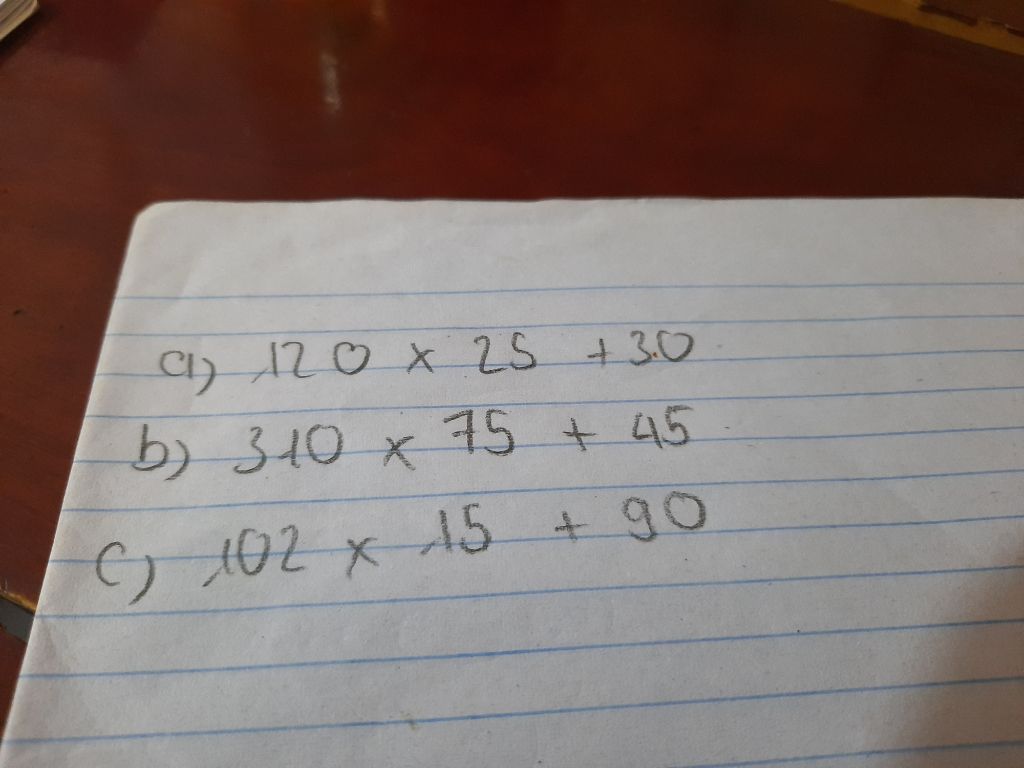 a) 120 x 25 + 30
b) 310 x 75 + 45
c) 102 x 15 + 90